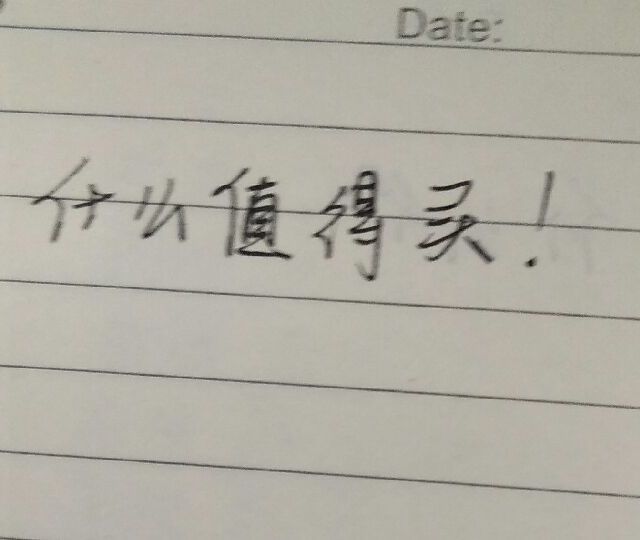 Date:
什么值得买!